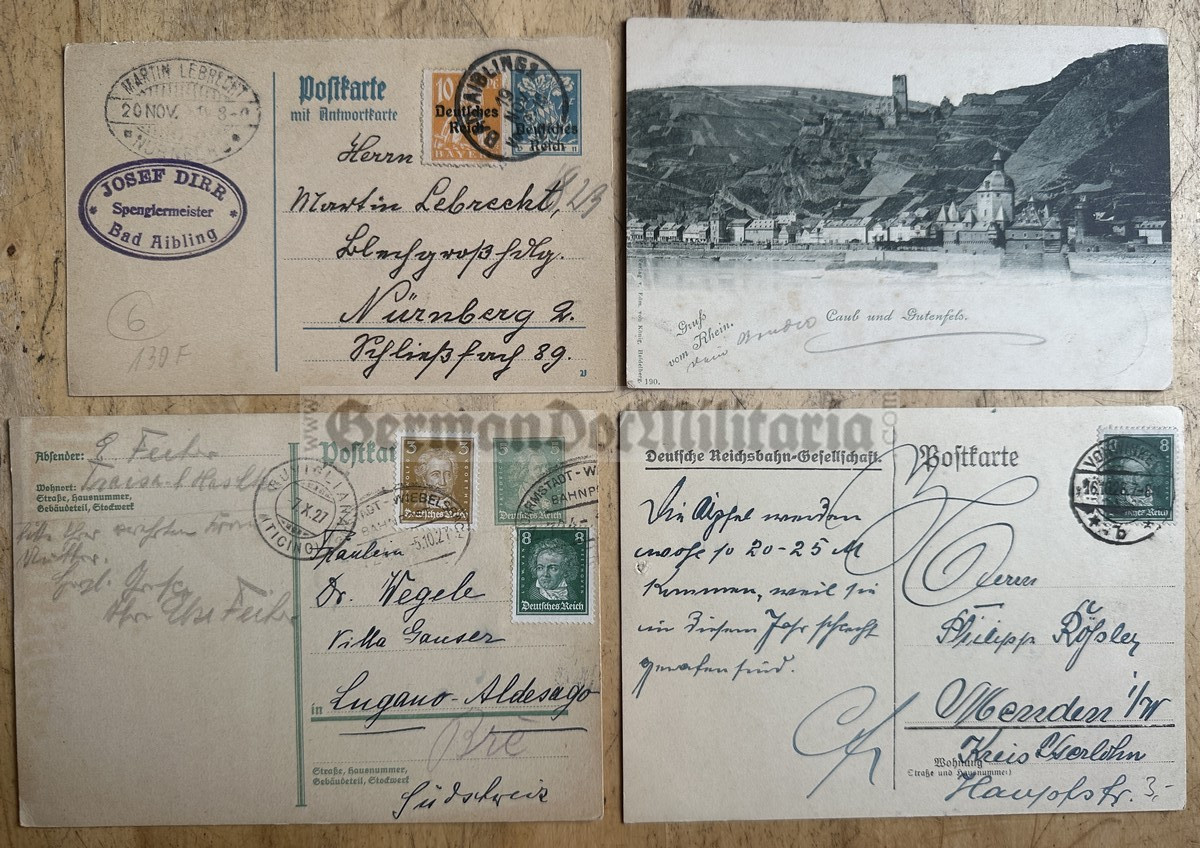 MARTIN LEBRECHT
20 NOV.
JOSEF DIRR
Spenglermeister
Bad Aibling
6
130 F
Postkarte
mit Antwortkarte
10
Deutsches
Reich
BAYERN
Deutsches
Reich
19
NOV
Herrn
Martin Lebrecht,
Blechgroßhdlg.
Nürnberg 2.
Schließfach 89.
Gruß
vom Rhein.
Caub und Gutenfels.
190.
www.GermanDorMilitaria.com
Absender:
Wohnort:
Straße, Hausnummer,
Gebäudeteil, Stockwerk
7.X.27
(TICINO)
Postkarte
3
3
Deutsches Reich
5
5
Deutsches Reich
8
8
Deutsches Reich
5.10.27
Fräulein
Dr. Wegele
Villa Gauser
in Lugano-Aldesago
Brè
Südschweiz
Straße, Hausnummer,
Gebäudeteil, Stockwerk
Deutsche Reichsbahn-Gesellschaft
Postkarte
8
Die Äpfel werden
wohl so 20-25 M
kommen, weil sie
in diesem Jahr schlecht
geraten sind.
Herrn
Philipp Rößler
Menden i/W
Kreis Iserlohn
Wohnung
(Straße und Hausnummer)
Hauptstr. 3.-